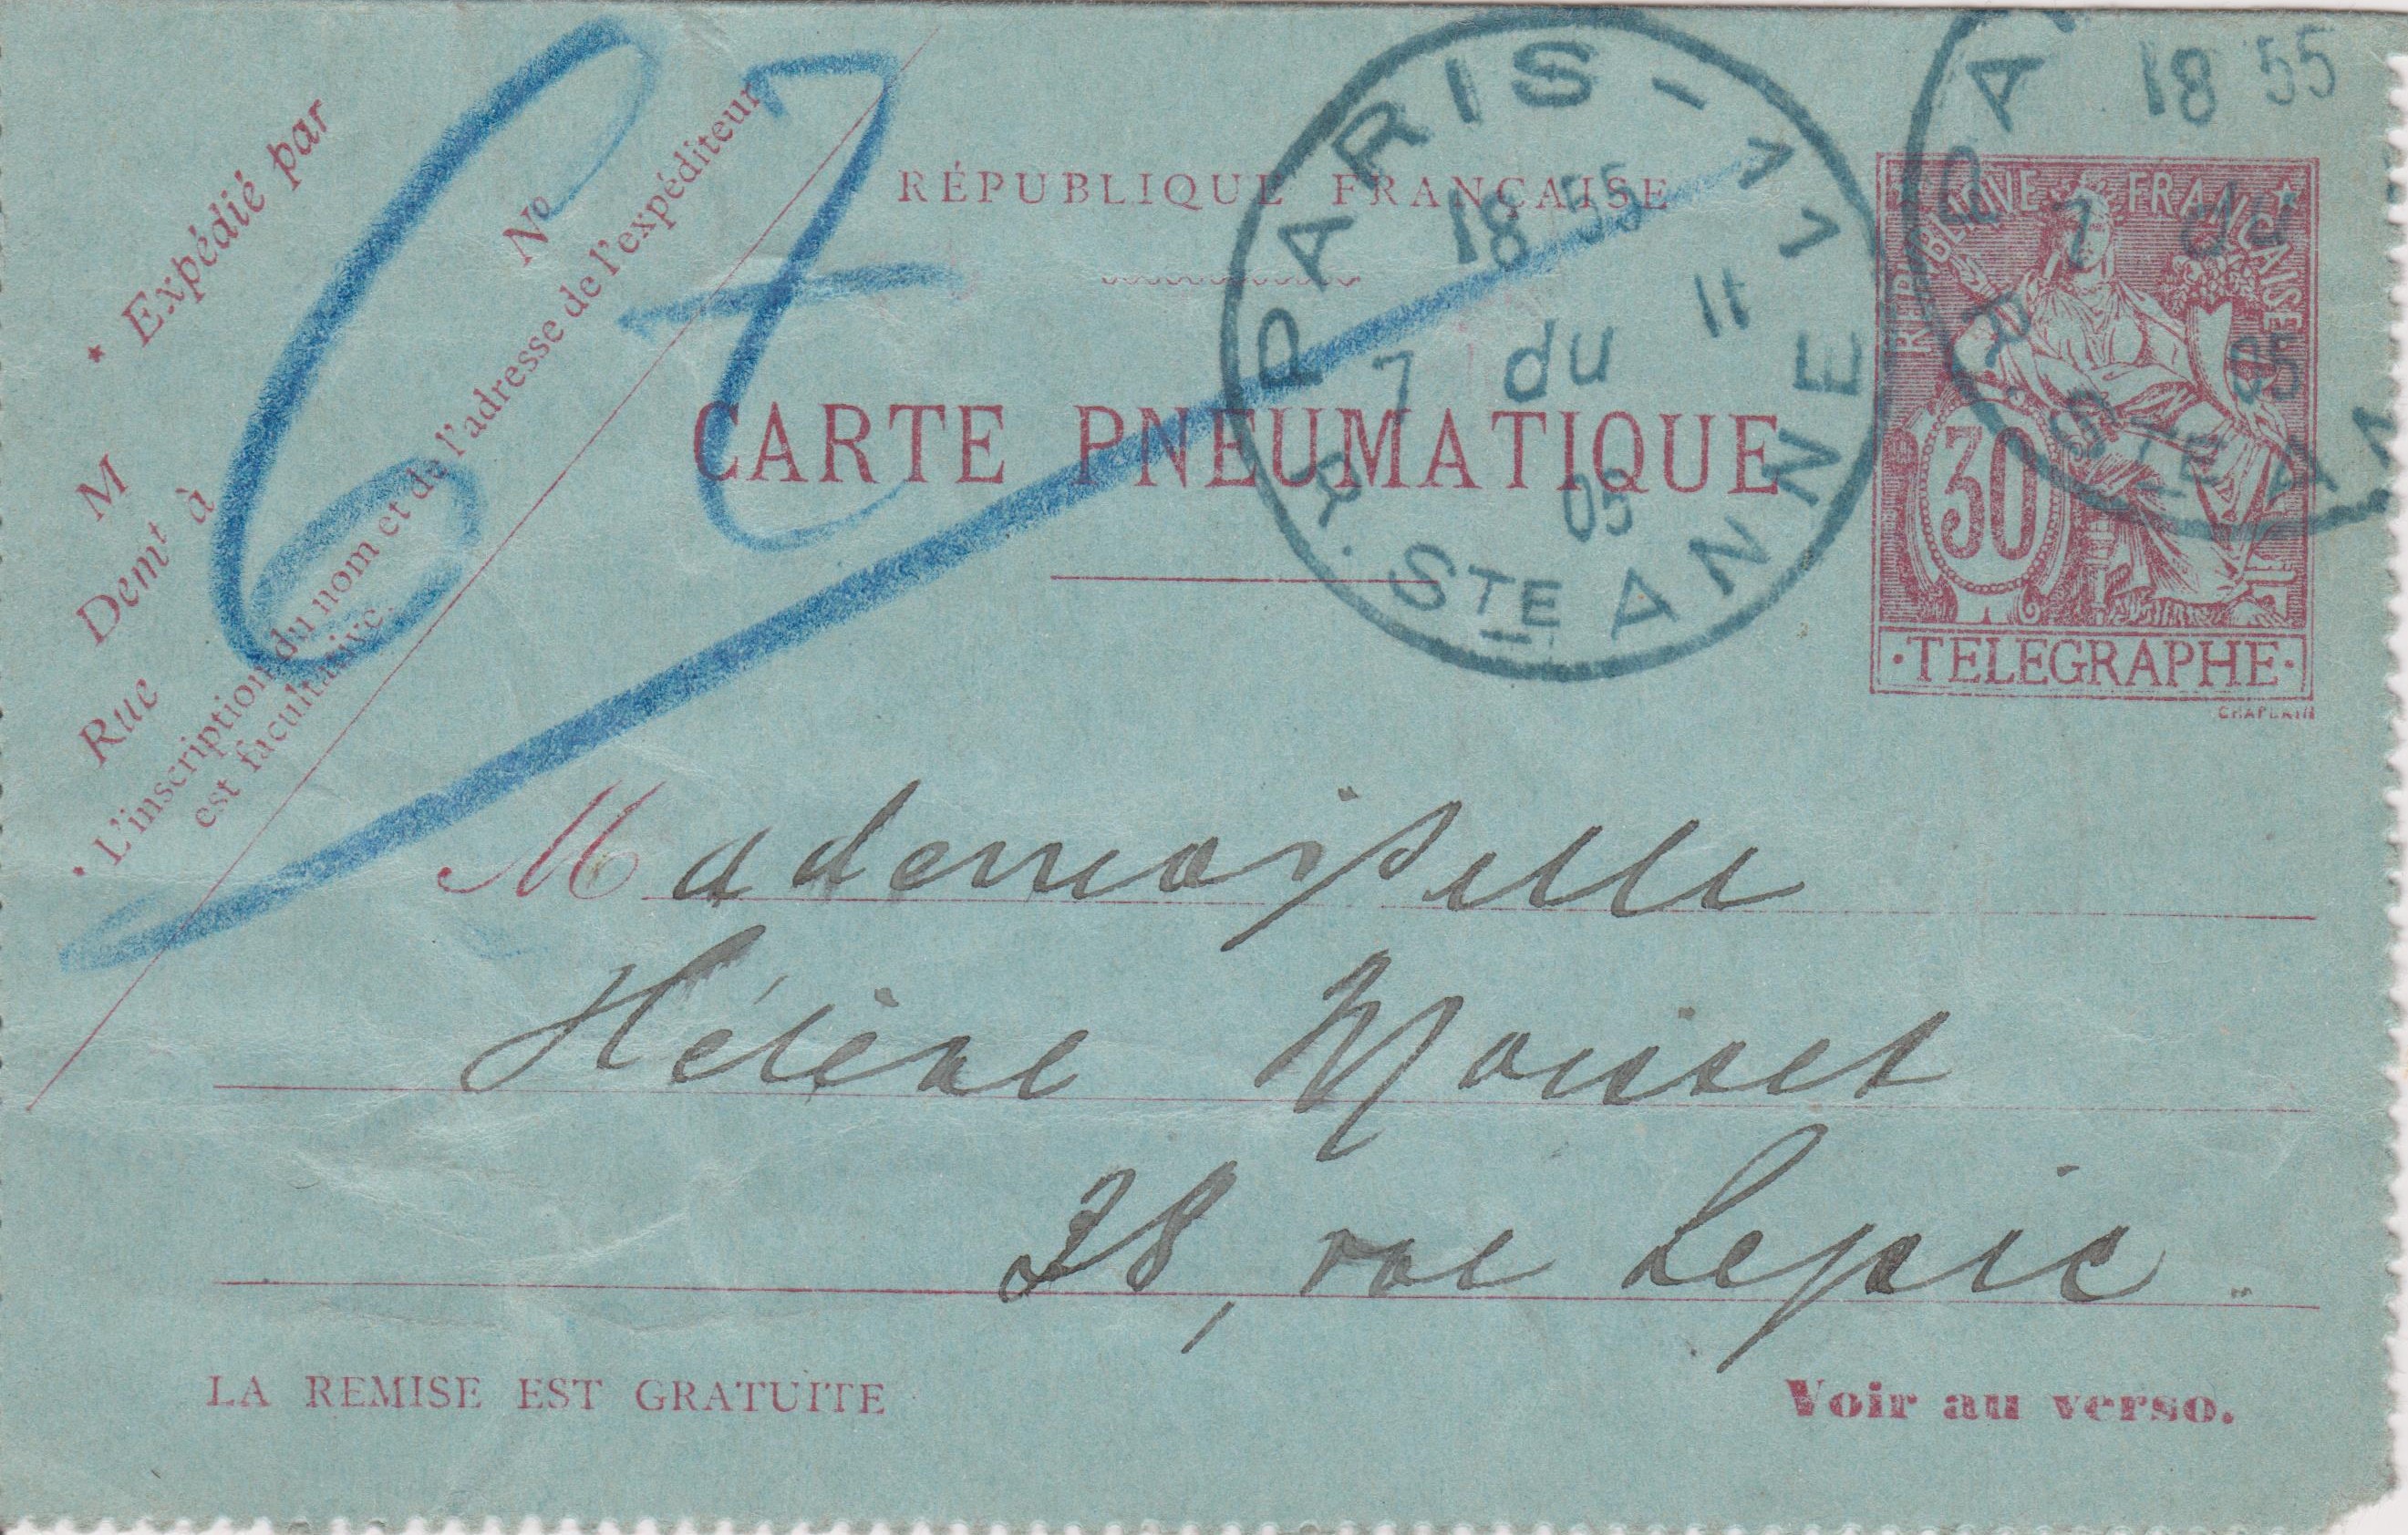 * Expédié par
M
Demt à
Rue
No
* L'inscription du nom et de l'adresse de l'expéditeur
est facultative.
67
RÉPUBLIQUE FRANÇAISE
CARTE PNEUMATIQUE
PARIS - 11
18 55
7 du 11
05
R. STE ANNE
18 55
7 du
05
R. STE AN
REPUBLIQUE FRANÇAISE
30
·TELEGRAPHE·
CHAPLAIN
Mademoiselle
Hélène
38, rue Lepic
LA REMISE EST GRATUITE
Voir au verso.